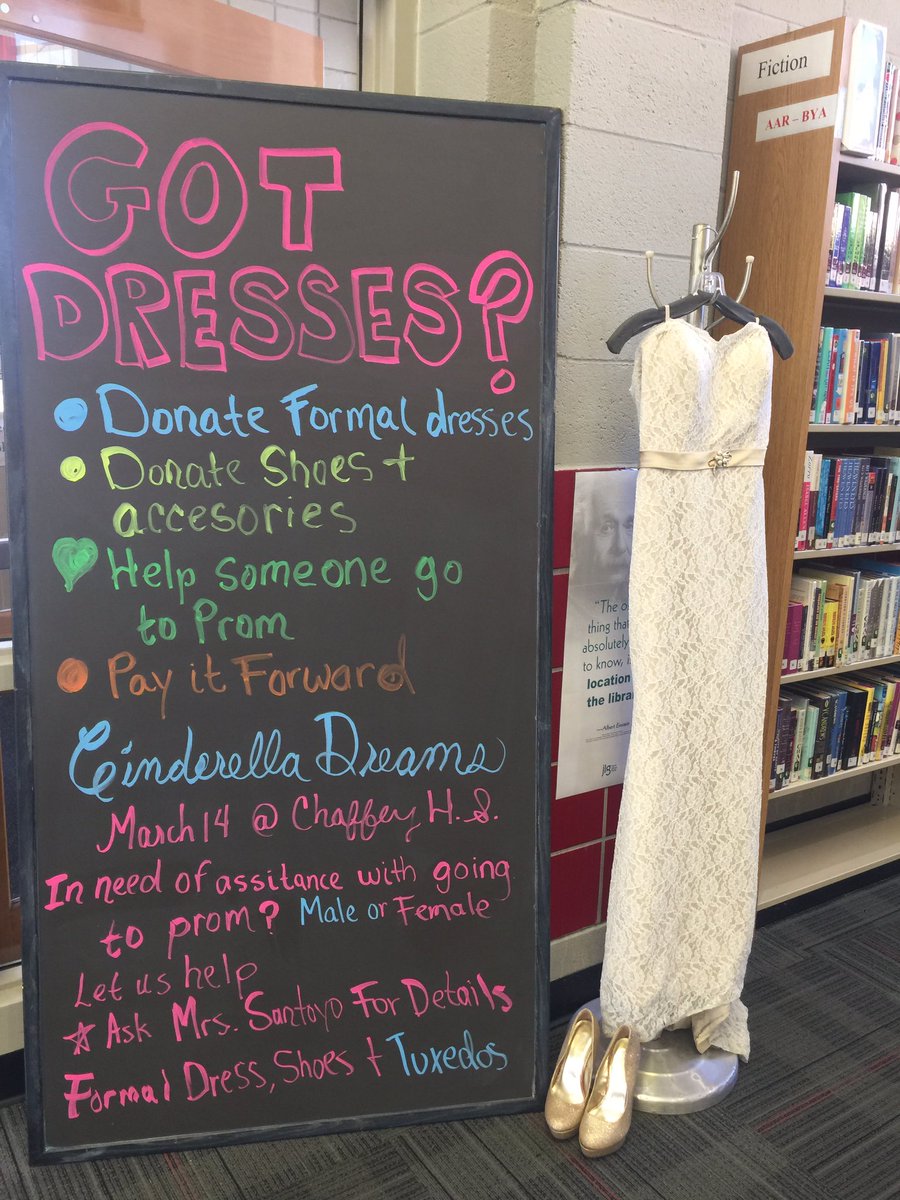 GOT
DRESSES?
Donate Formal dresses
Donate Shoes +
accesories
Help someone go
to Prom
Pay it Forward
Cinderella Dreams
March 14 @ Chaffey H.S.
In need of assitance with going
to prom? Male or Female
Let us help
Ask Mrs. Santoyo For Details
Formal Dress, Shoes + Tuxedos
Fiction
AAR – BYA
"The
thing that
absolutely
to know,
location
the library
—Albert Einstein
jlg